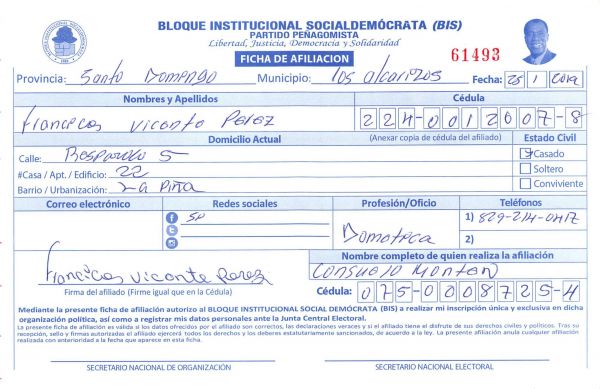 BLOQUE INSTITUCIONAL SOCIALDEMÓCRATA (BIS)
PARTIDO PEÑAGOMISTA
Libertad, Justicia, Democracia y Solidaridad
FICHA DE AFILIACION
61493
Provincia: Santo Domingo Municipio: Los alcarrizos Fecha: 25 1
Nombres y Apellidos Cédula
Vicente Perez 224-0012007-8
Domicilio Actual (Anexar copia de cédula del afiliado) Estado Civil
Calle: 5 Casado
#Casa / Apt. / Edificio: 22 Soltero
Barrio / Urbanización: La Piña Conviviente
Correo electrónico Redes sociales Profesión/Oficio Teléfonos
1) 829-214-0417
2)
Vicente Perez
Firma del afiliado (Firme igual que en la Cédula)
Nombre completo de quien realiza la afiliación
Consuelo Montan
Cédula: 075-0008725-4
Mediante la presente ficha de afiliación autorizo al BLOQUE INSTITUCIONAL SOCIAL DEMÓCRATA (BIS) a realizar mi inscripción única y exclusiva en dicha
organización política, así como a registrar mis datos personales ante la Junta Central Electoral.
La presente ficha de afiliación es válida si los datos ofrecidos por el afiliado son correctos, las declaraciones veraces y si el afiliado tiene el disfrute de sus derechos civiles y políticos. Tras su
recepción, sello y firmas autorizadas el afiliado ejercerá todos los derechos y los deberes estatutariamente sancionados, de acuerdo a la ley. La presente afiliación anula cualquier afiliación
realizada con anterioridad a la fecha que aparece en esta ficha.
SECRETARIO NACIONAL DE ORGANIZACIÓN SECRETARIO NACIONAL ELECTORAL